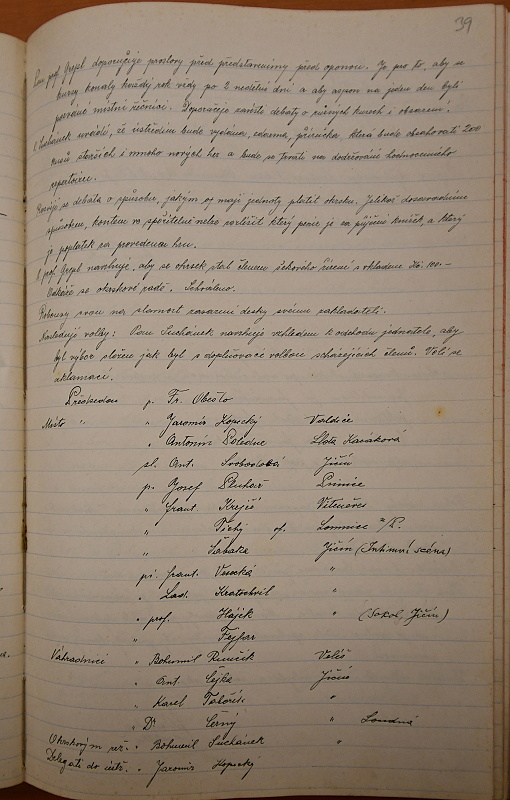 39
Pan prof. Grepl doporučuje proslovy před představeními před oponou. Je pro to, aby se
kursy konaly každý rok vždy po 2 nedělní dni a aby aspoň na jeden den byli
pozváni místní řečníci. Doporučeje zavésti debaty o různých kursech i obsazení.
Suchánek uvádí, že ústředím bude vydána, zdarma, příručka která bude obsahovati 200
kusů starších i mnoho nových her a bude se trvati na dodržování hodnotného
repertoiru.
Rozvíjí se debata o způsobu, jakým mají jednoty platit okrsku. Jelikož dosavadním
způsobem, kontem ve spořitelně nelze rozlišit který peníz je za půjčení knížek, a který
je poplatek za provedenou hru.
P. prof. Grepl navrhuje, aby se okrsek stal členem šekového řízení s vkladem Kč. 100.-
Odkáže se okrskové radě. Schváleno.
Robousy zvou na slavnost zasazení desky svému zakladateli.
Následují volby: Pan Suchánek navrhuje vzhledem k odchodu jednatele, aby
byl výbor složen jak byl s doplňovací volbou scházejících členů. Volí se
aklamací.
Předsedou p. Fr. Obešlo
Místo " " Jaromír Kopecký Valdice
" Antonín Poledne Lhota Kasáková
sl. Ant. Svobodová Jičín
p. Josef
" Frant. Krejčí Vitiněves
" Tichý of. Lomnice n/P.
" Jičín (Intimní scéna)
pí. Frant. Vesecká "
" Lad. Kratochvil "
" prof. Hájek " (Sokol, Jičín)
" Fejfar
Náhradníci " Bohumil Veliš
" Ant. Čejka Jičín
" Karel "
" Dr Černý "
Okrskovým rež. " Bohumil Suchánek "
Delegáti do ústř. " Jaromír Kopecký